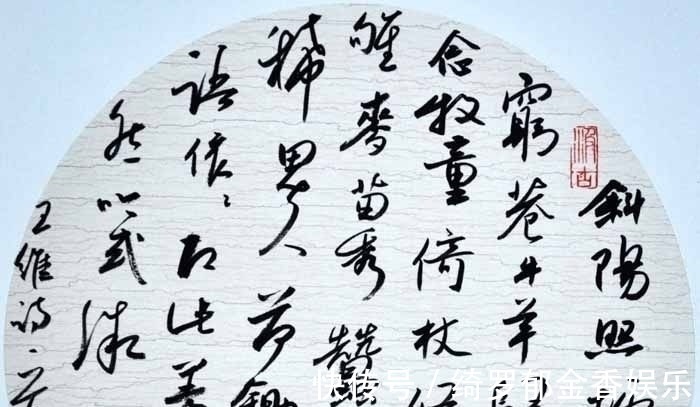 斜陽照
窮巷牛羊
念牧童倚杖候
雊麥苗秀蠶
稀田夫荷鋤
語依依即此羨
然吟式微
王維詩一首
快传号/绮罗郁金香娱乐